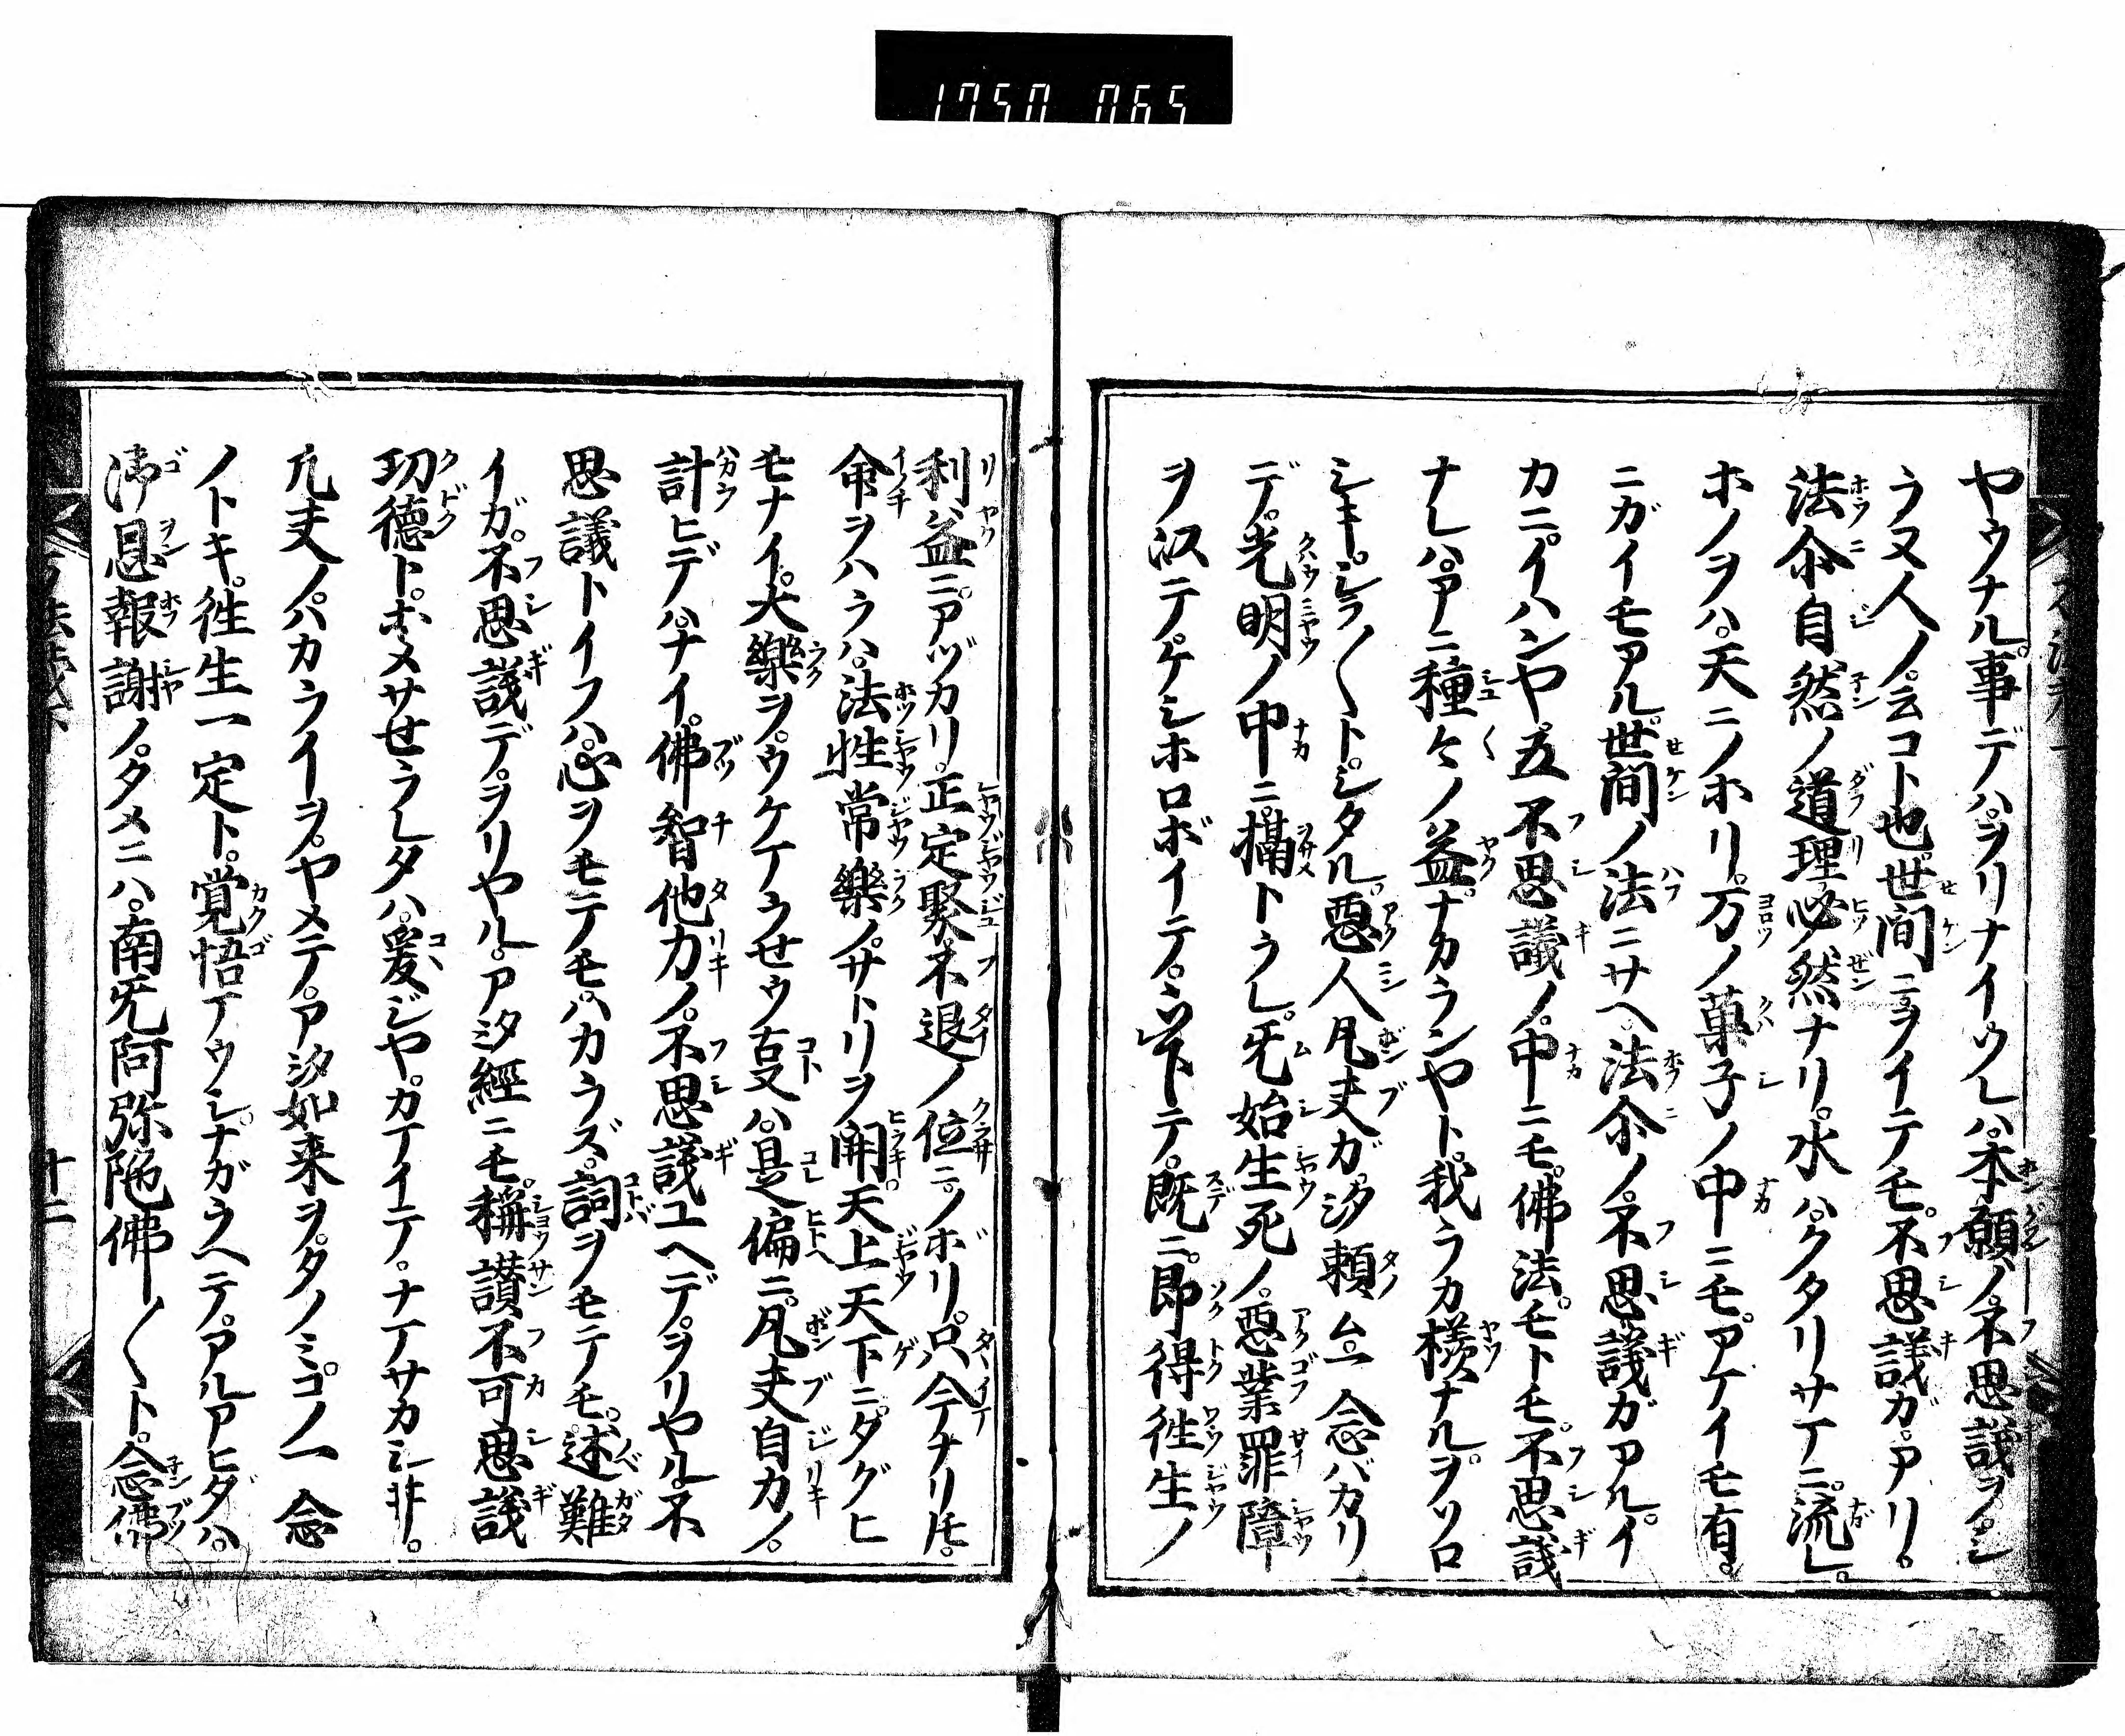 1750 065
ヤウナル。事デハ。ヲリナイ。ウレハ。本願ノ。不思議ヲ。シ
ラヌ人ノ。云コト也。世間ニヲイテモ。不思議ガ。アリ。
法尒自然ノ道理必然ナリ。水ハ。クタリサマニ。流レ。
ホノヲハ。天ニノホリ。万ノ菓子ノ中ニモ。アケイモ有。
ニガイモアル。世間ノ法ニサヘ。法尒ノ。不思議ガアル。イ
カニ。イハンヤ五不思議ノ。中ニモ。佛法。モトモ。不思議
ナレハ。アニ種々ノ益。ナカランヤト。我ラカ様ナル。ヲソロ
シキ。シラ〱ト。シタル。惡人凡夫ガ。汐頼ム。一念バカリ
デ。光明ノ中ニ。攝トラレ。旡始生死ノ。惡業罪障
ヲ以テ。ケシホロボイテ。下テ。既ニ。即得徃生ノ
利益ニ。アヅカリ。正定聚。不退ノ位ニ。ノボリ。只今ナリ𪜈。
命ヲハラハ。法性常樂ノ。サトリヲ開。天上天下ニ。タグヒ
モナイ。大樂ヲ。ウケテウせウ叓ハ。是偏ニ。凡夫自力ノ。
計ヒデハ。ナイ。佛智他力ノ。不思議ユヘデ。ヲリヤル。不
思議トイフハ。心ヲモテモ。ハカラズ。詞ヲモテモ。述難
イガ。不思議デ。ヲリヤル。アタ經ニモ。稱讃不可思議
功德ト。ホメサせラレタハ。爰ジヤ。カマイテ。ナマサカシ非。
凡夫ノ。ハカライヲ。ヤメテ。アタ如来ヲ。タノミ。コノ一念
ノトキ。徃生一定ト。覚悟マウシ。ナガラヘテ。アルアヒダハ。
御恩報謝ノ。タメニハ。南旡阿弥陁佛〱ト。念佛
十二